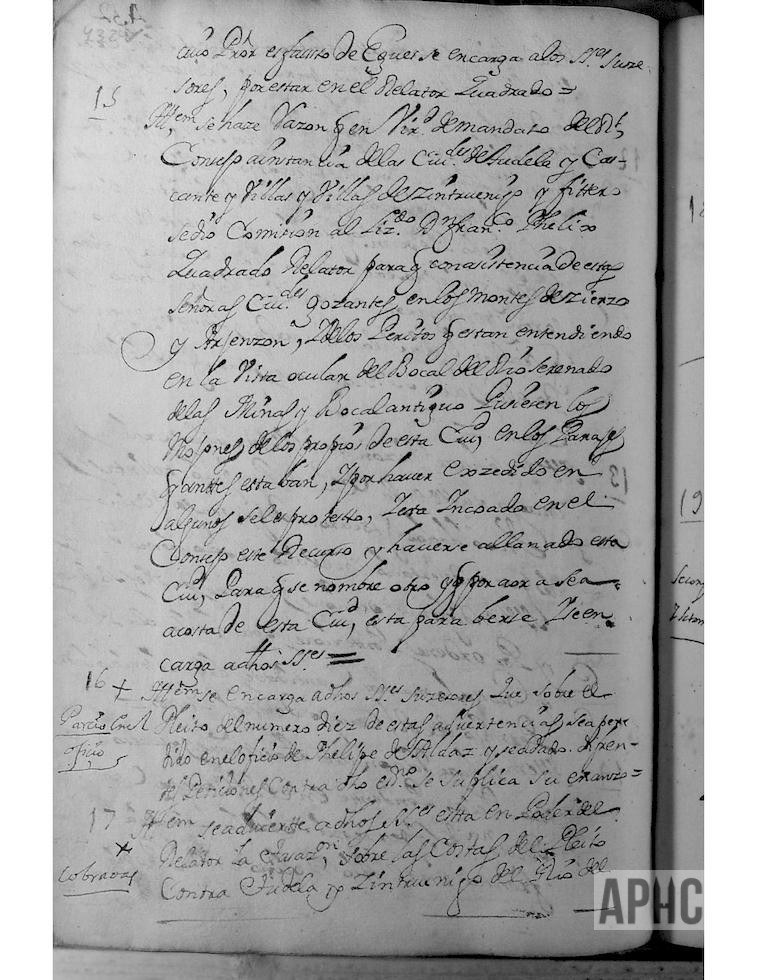 cuio Pror es fausto de Egues se encarga a los SSres suzesores, por estar en el Relator Quadrado =
15
Ittem, se haze Razon q en Vird de mandato del Rl
Consejo a instancia delas Ciudes de Tudela y Cas-
cante y Villas y Villas de Zintruenigo y fittero
se dio Comision al Lizdo Dn franco Phelix
Quadrado Relator para q con asistencia de estas
Señoras Ciudes gozantes en los montes de Zierzo
y Arjenzon, Y delos Peritos q estan entendiendo
en la Vista ocular del Bocal del Rio serenado
delas Minas y Bocal antiguo Pusiesen los
Mojones delos propios de esta Ciud, en los Parajes
q antes estaban, Y por haver exzedido en
algunos se le protesto, Y esta Incoado en el
Consejo este Recurso y haverse allanado esta
Ciud, Para q se nombre otro y q por aora sea
a costa de esta Ciud, esta para berse Y se en
carga a dhos SSres =
16 +
Ittem se encarga a dhos SSres suzesores que sobre el
Pleito del numero diez de estas advertencias, sea pe
dido en el oficio de Phelipe de Aldaz y
tes Peticiones Contra dho se suplica su
oficio
17
Ittem se advierte a dhos SSres esta en Poder del
Relator la sobre las Costas del Pleito
Contra Tudela y Zintruenigo del Rio del
+
cobradas
19
APHC